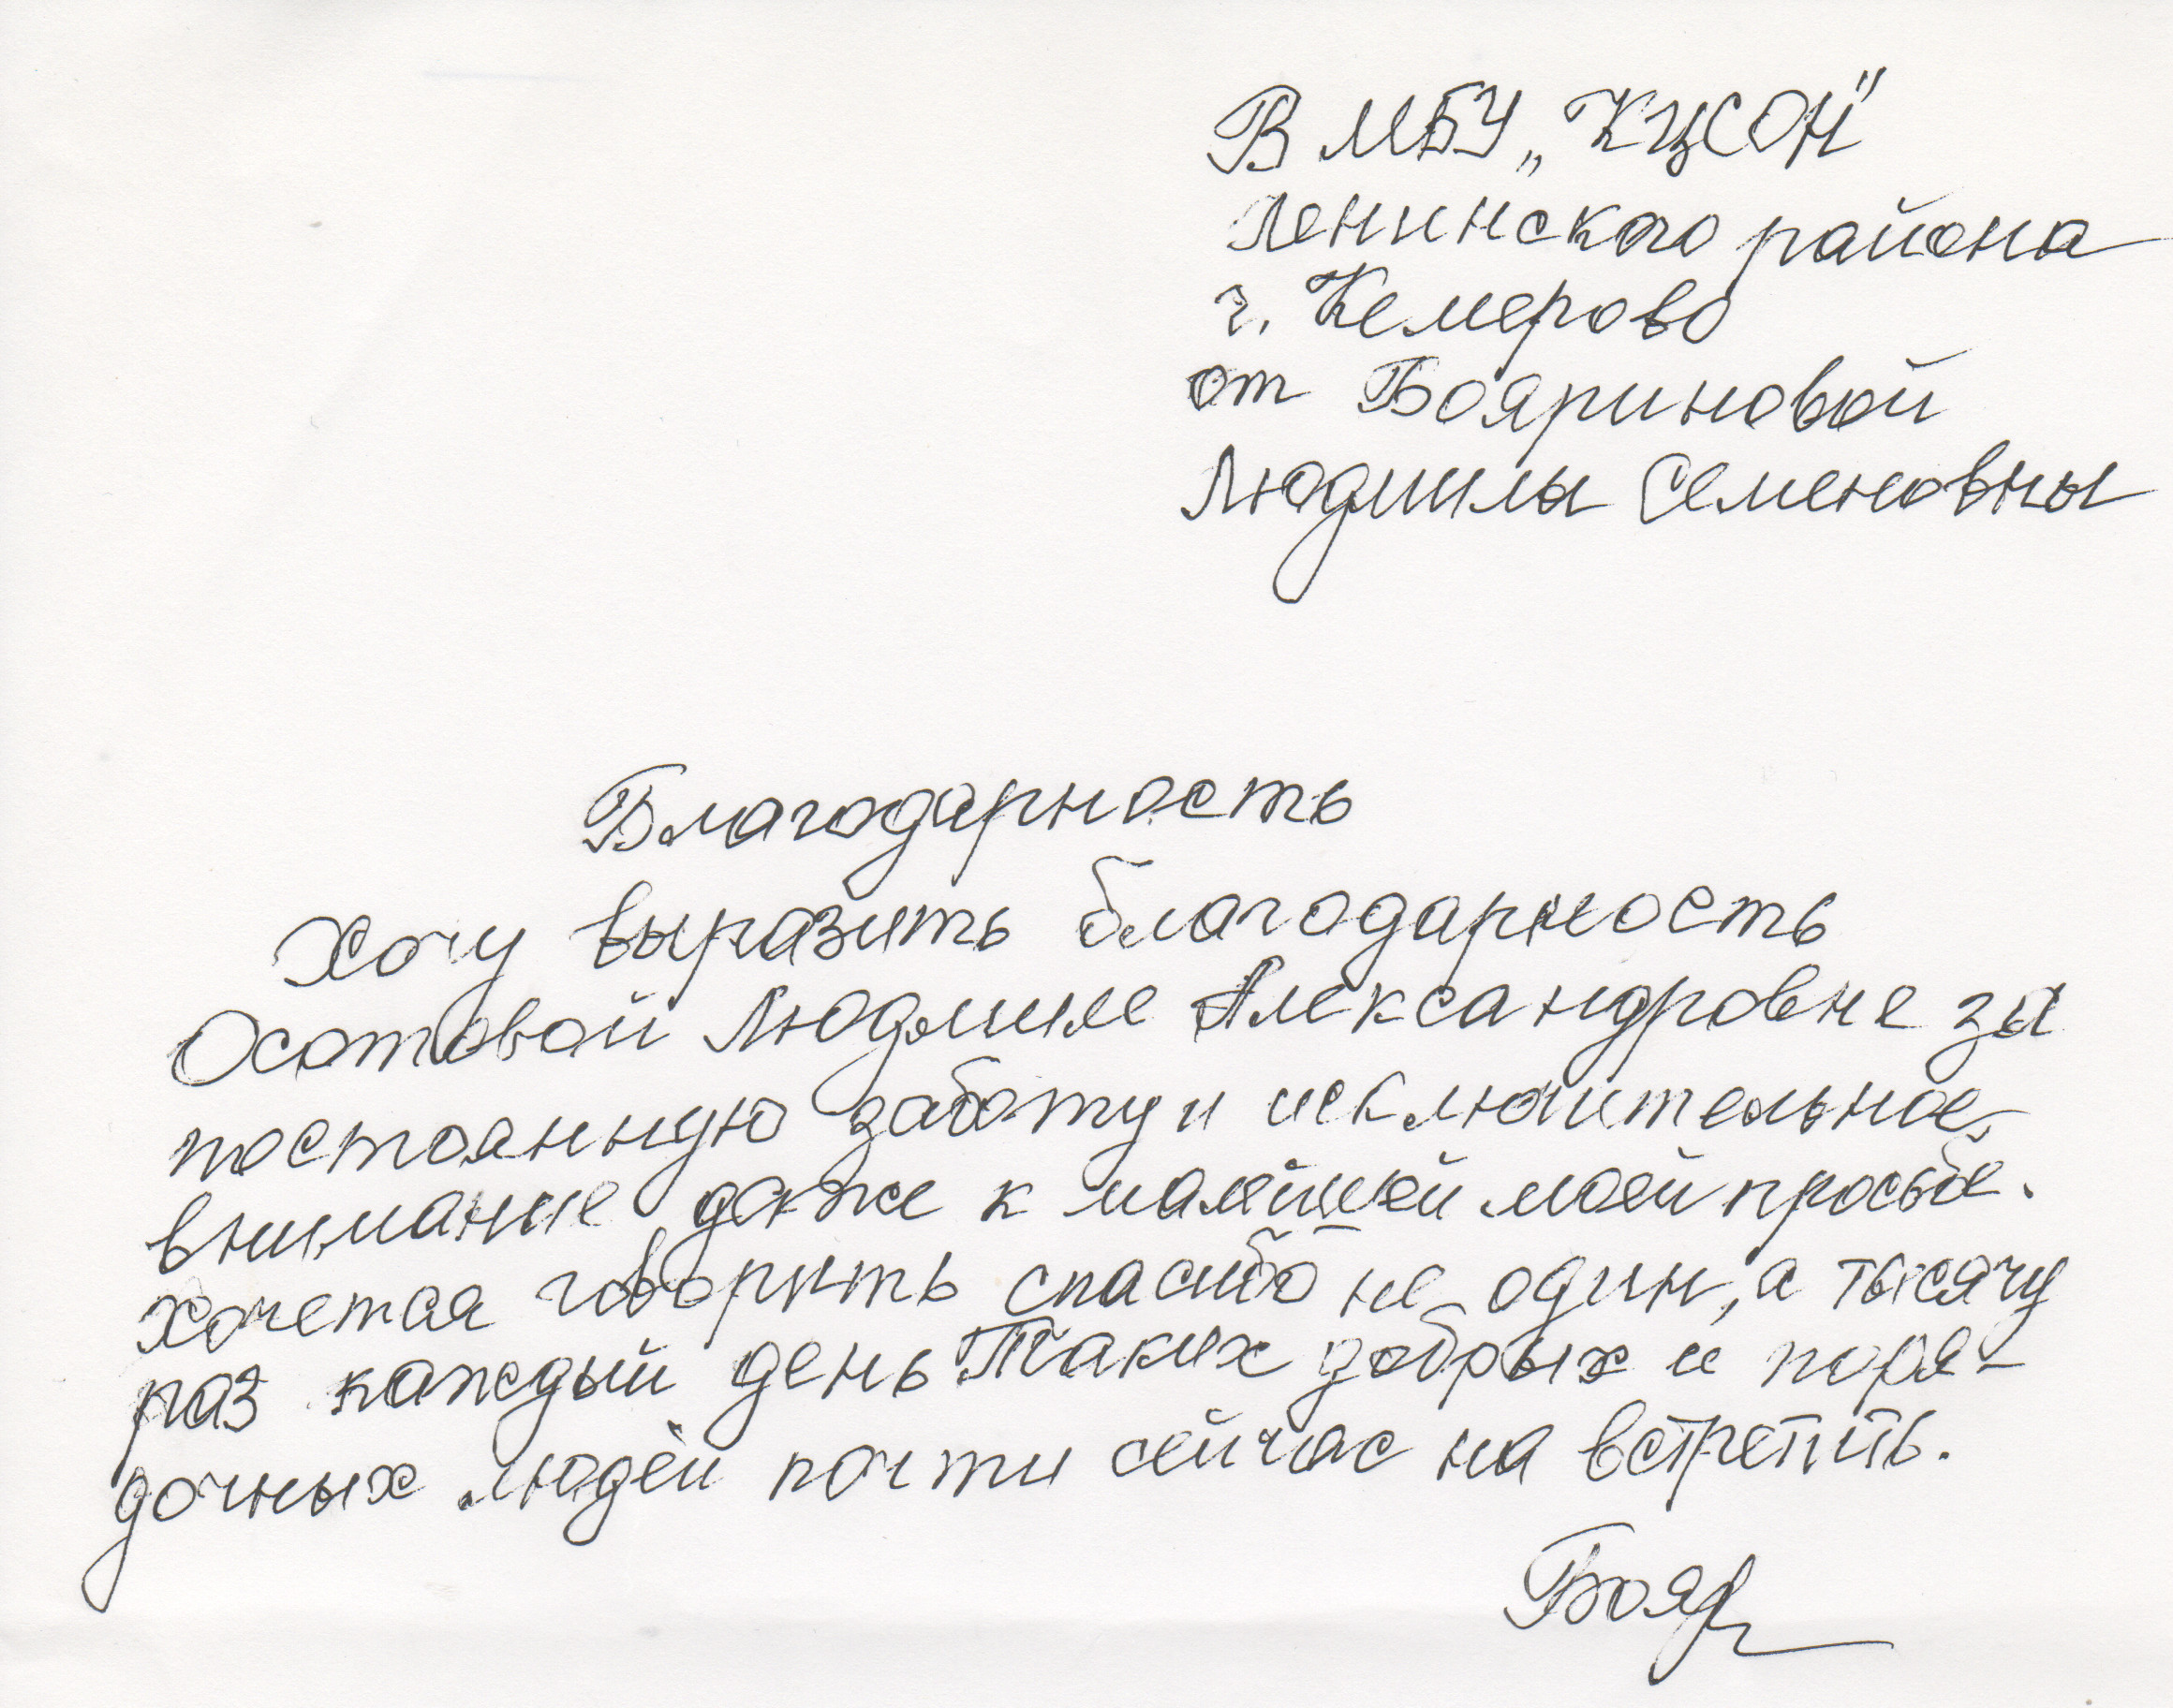 В МБУ „КЦСОН"
Ленинского района
г. Кемерово
от Бояриновой
Людмилы Семеновны
Благодарность
Хочу выразить благодарность
Осотовой Людмиле Александровне за
постоянную заботу и исключительное
внимание даже к малейшей моей просьбе.
хочется говорить спасибо не один, а тысячу
раз каждый день. Таких добрых и поря-
дочных людей почти сейчас на встретить.
Бояр